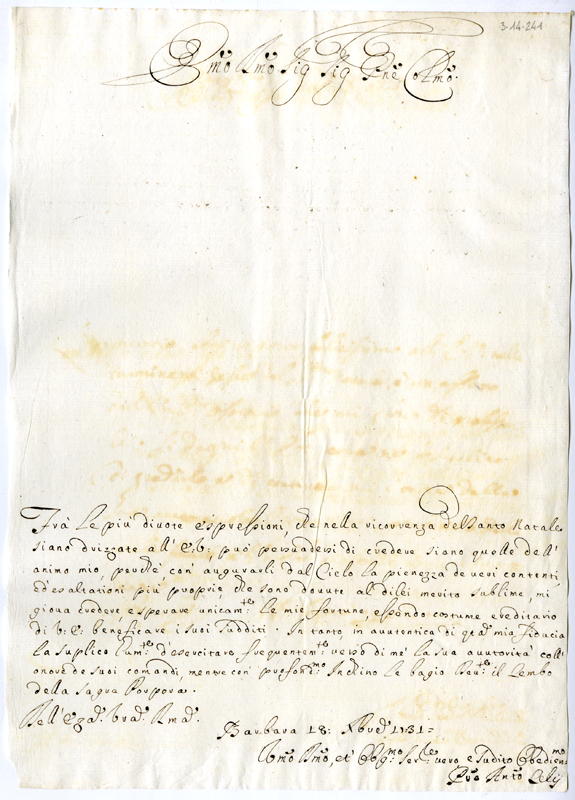 3-14-241
Emo Rmo Sig Sig Pne Colmo.
Frà Le più divote espressioni, che nella ricorrenza del Santo Natale
siano drizzate all' E: V:, può persuadersi di credere siano quelle dell'
animo mio, perche con augurarli dal Cielo la pienezza de veri contenti
ed'esaltationi più proprie, che sono dovute al di lei merito sublime, mi
giova credere, e sperare unicamte: Le mie fortune, essendo costume ereditario
di V: E: beneficare i suoi sudditi. In tanto, in autentica di qta mia fiducia
la suplico umte: d'esercitare frequentemte: verso di me la sua autorità coll'
onore de suoi comandi, mentre con profondmo Inchino le bagio Revte: il Lembo
della sagra Porpora.
Dell' E
Barbara 18: Xbre 1731=
Umo Dmo, et Obgmo: Serre vero, e sudito Obedienmo
Anto